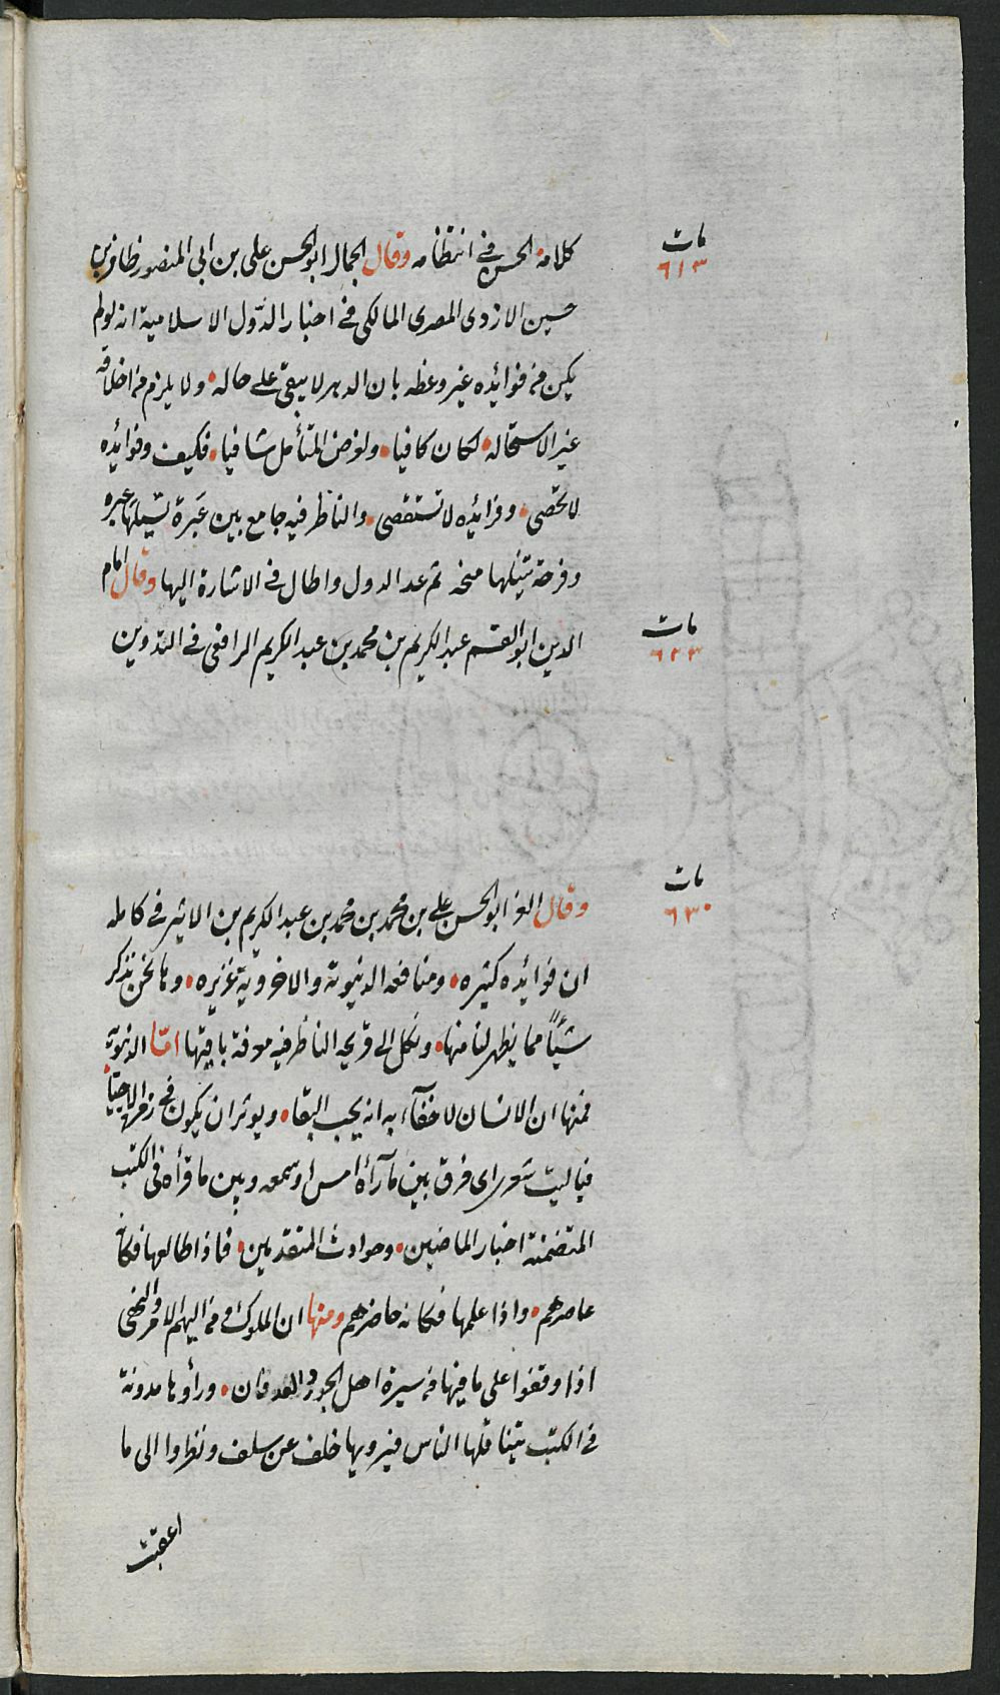 كلامه الحسن في انتظامه وقال الجمال ابوالحسن على بن ابى المنصور ظافر بن
مات
٦١٣
حسين الازدى المصرى المالكى فى اخبار الدّول الاسلامية انه لولم
يكن من فوائده غير وعظه بان الدهر لا يبقى على حاله ولا يلزم من اخلاقه
غير الاستحاله لكان كافيا ولغرض المتأمل شافيا فكيف وفوائده
لا تحصى وفرائده لا تستقصى والناظر فيه جامع بين عَبرة تسيلها عبره
وفرحة تنيلها منحه ثم عد الدول واطال فى الاشارة اليها وقال امام
الدين ابوالقسم عبدالكريم بن محمد بن عبدالكريم الرافعى فى التدوين
مات
٦٢٣
وقال العز ابوالحسن على بن محمد بن محمد بن عبدالكريم بن الاثير فى كامله
مات
٦٣٠
ان فوائده كثيره ومنافعه الدنيوية والاخروية غزيره وها نحن نذكر
شيئاً مما يظهر لنا منها ونكل الى قريحة الناظر فيه معرفة باقيها امّا الدنيوية
فمنها ان الانسان لا خفآء به انه يحب البقا ويوثر ان يكون فى زمرة الاحيآ
فياليت شعرى اى فرق بين مآ رآه امس او سمعه وبين ما قرأه فى الكتب
المتضمنة اخبار الماضين وحوادث المتقدمين فاذا طالعها فكانه
عاصرهم واذا علمها فكانه حاضرهم ومنها ان الملوك ومن اليهم الامر والنهى
اذا وقفوا على ما فيها من سيرة اهل الجور والعدوان ورأوها مدونة
فى الكتب يتناقلها الناس فيرويها خلف عن سلف ونظروا الى ما
اعقبت